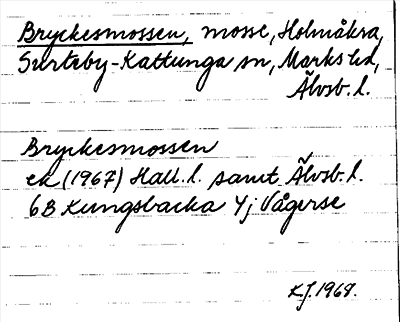 Bryckesmossen, mosse, Holmåkra,
Surteby-Kattunga sn, Marks hd,
Älvsb. l.
Bryckesmossen
ek (1967) Hall. l. samt Älvsb. l.
6B Kungsbacka 4j Vågerse
K.J. 1968.